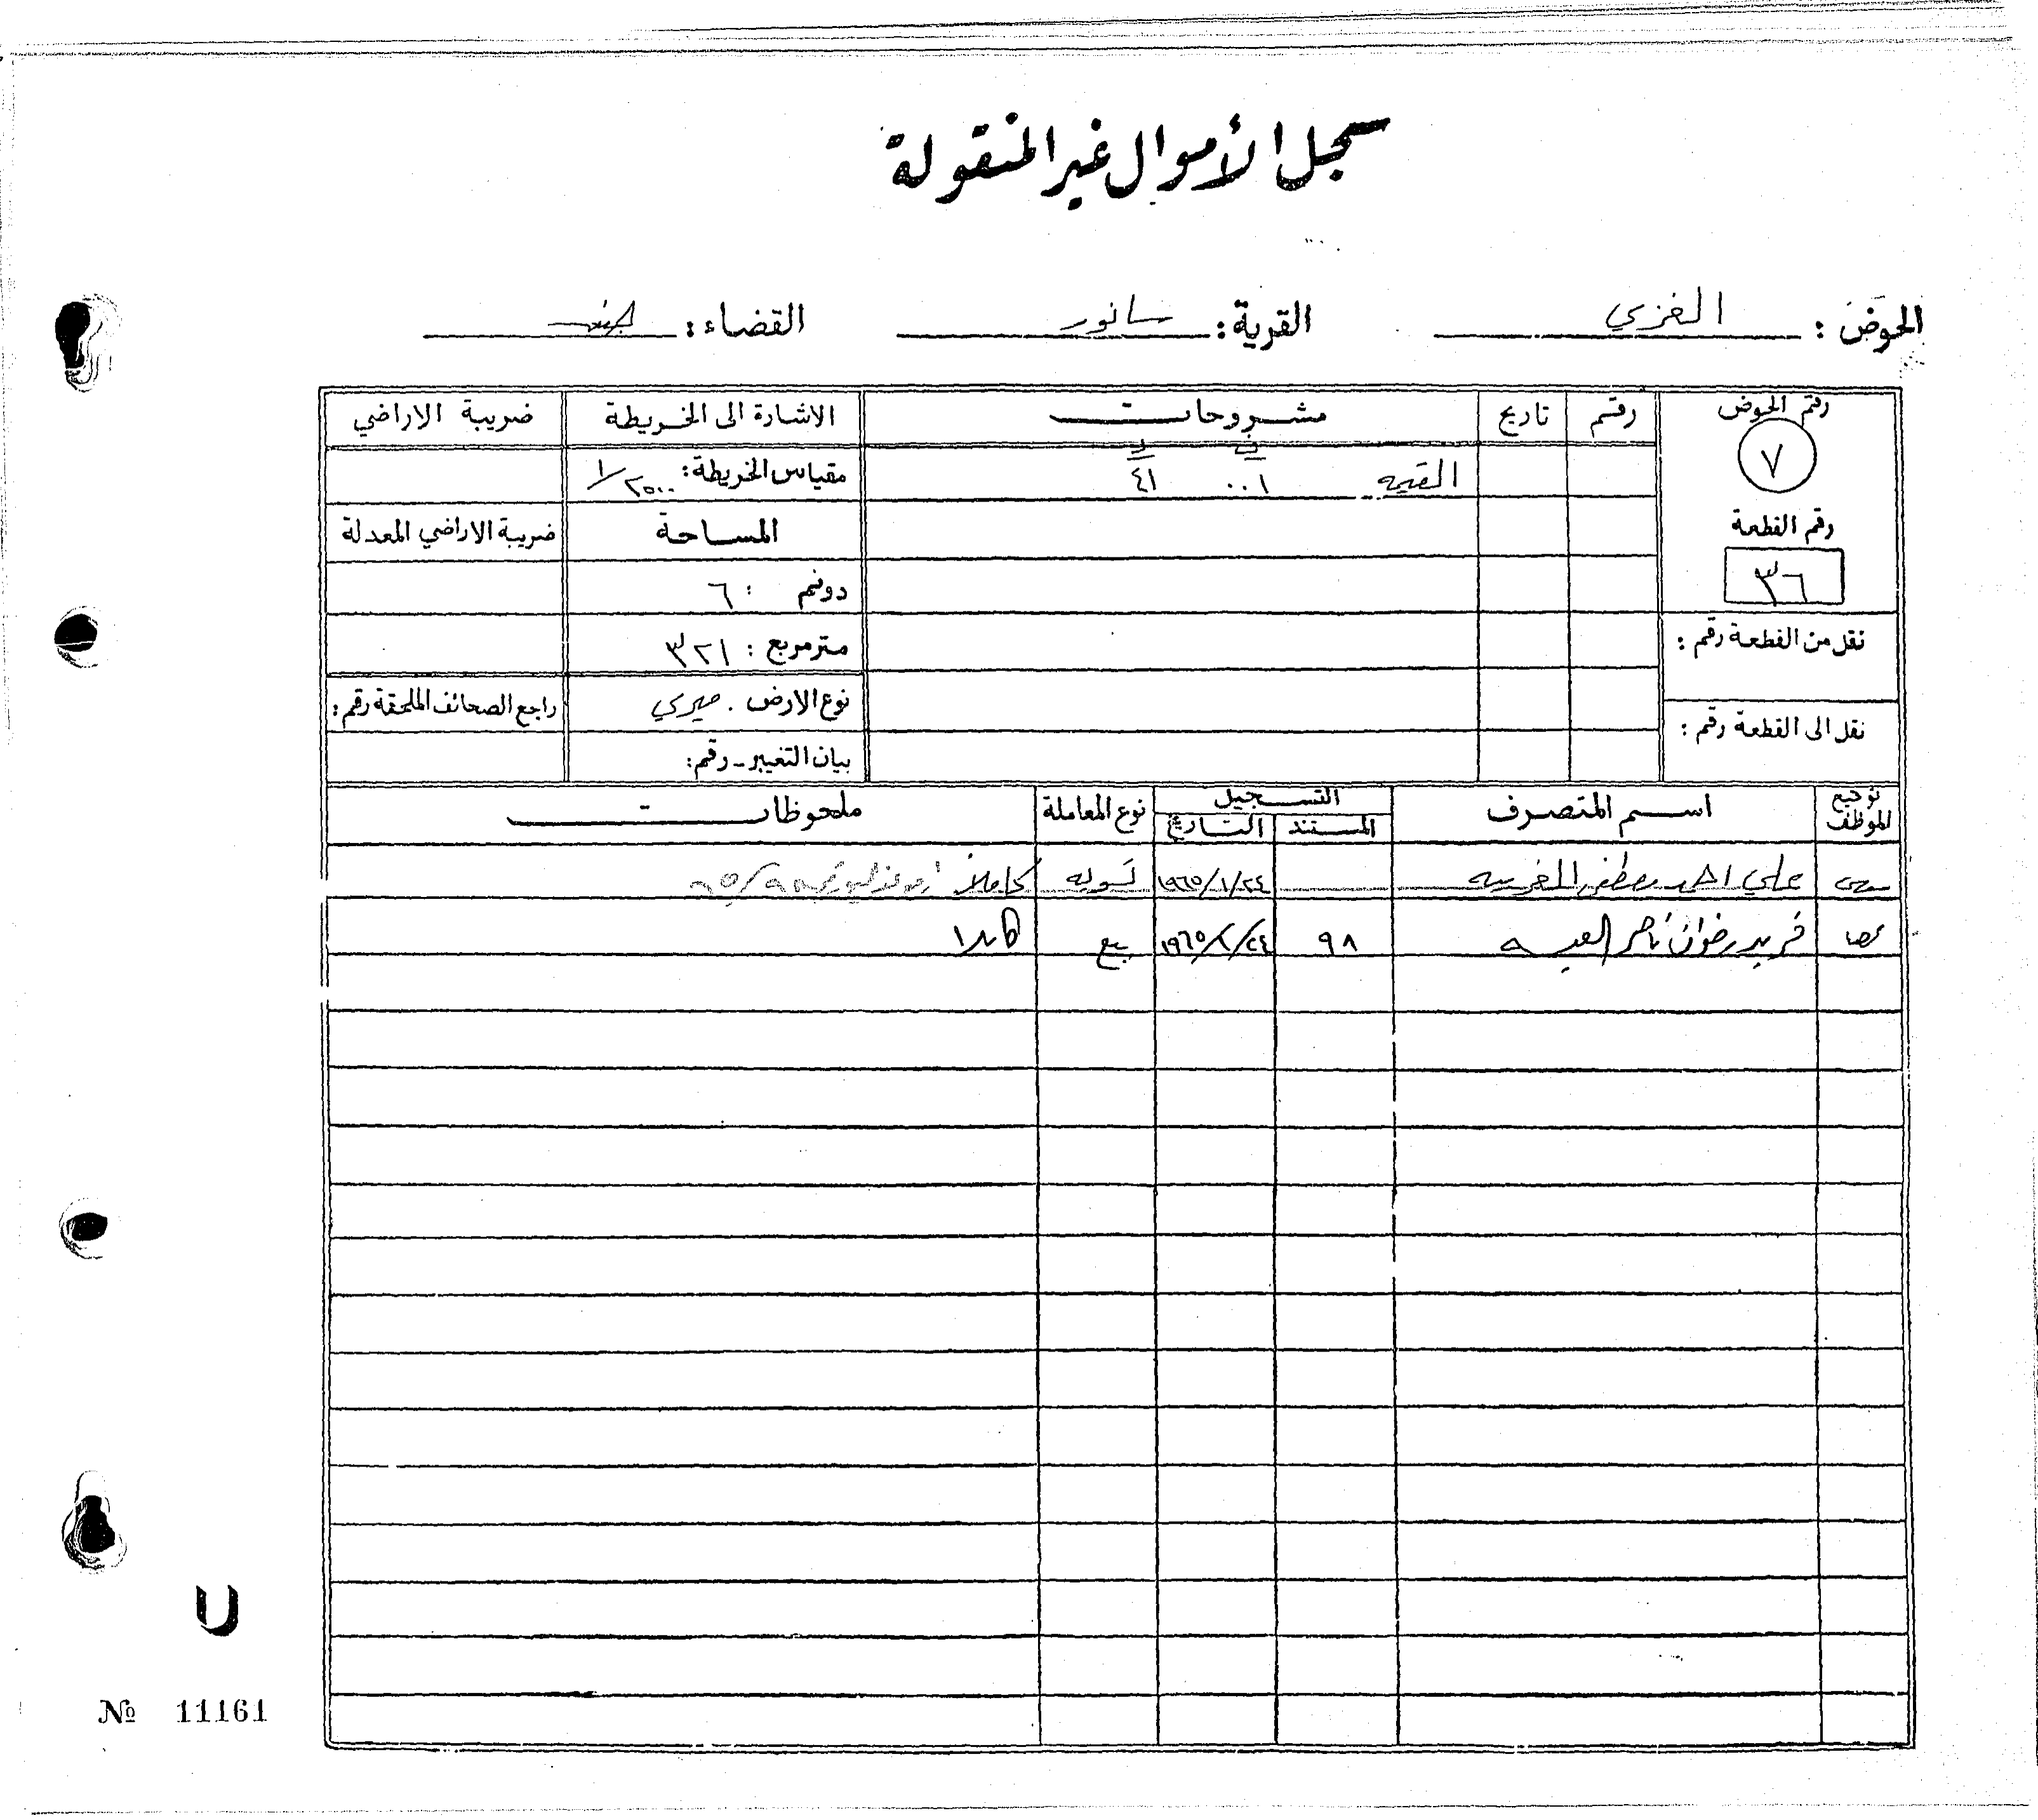 سجل الأموال غير المنقولة
الحوض : الغزي القرية : سانور القضاء : جنين
رقم الحوض رقم تاريخ مشروحات الاشارة الى الخريطة ضريبة الاراضي
٧
القيمه ٠٠١ ٤١ مقياس الخريطة : ١/٢٥٠٠
رقم القطعة المساحة ضريبة الاراضي المعدلة
٣٦ دونم : ٦
نقل من القطعة رقم : متر مربع : ٣٢١
نوع الارض . ميري راجع الصحائف الملحقة رقم :
نقل الى القطعة رقم :
بيان التغيير - رقم :
توقيع الموظف اسم المتصرف التسجيل نوع المعاملة ملحوظات
المستند التاريخ
علي احمد مصطفى ١٩٦٥/١/٢٤ تسويه كاملاً
فريد رضوان ناصر ٩٨ ١٩٦٥/٢/٢٤ بيع كاملا
U
№ 11161